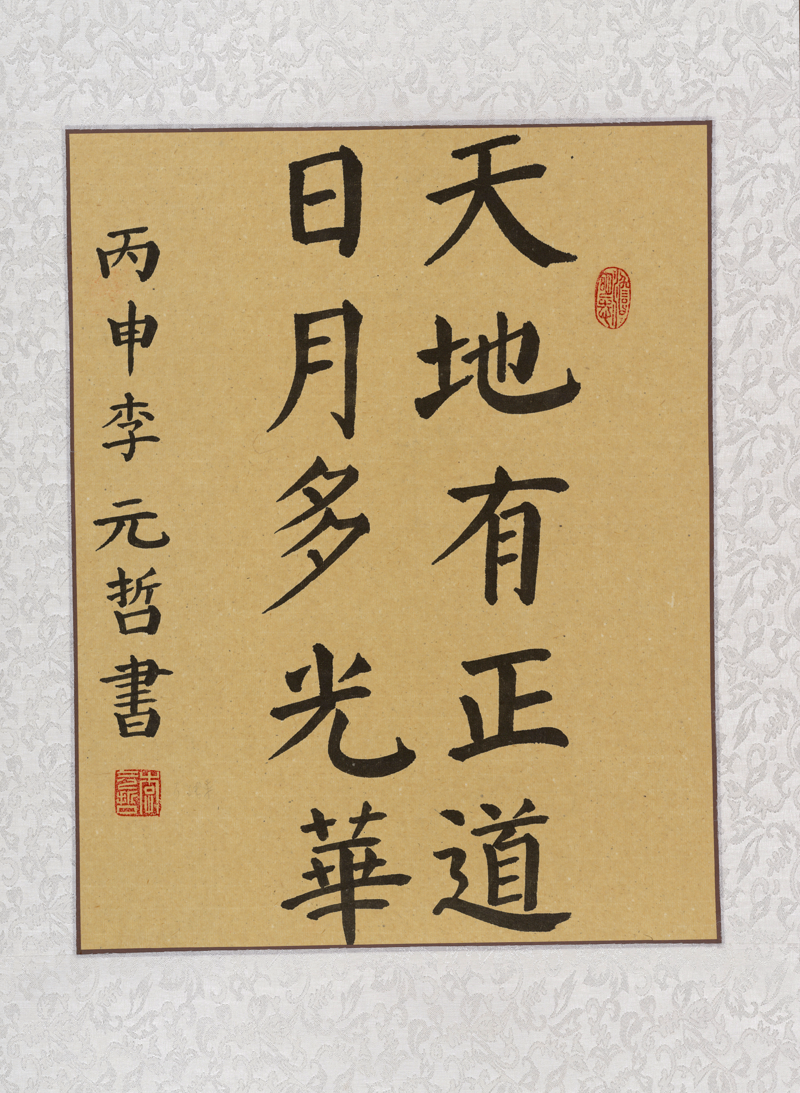 天地有正道
日月多光華
丙申李元哲書